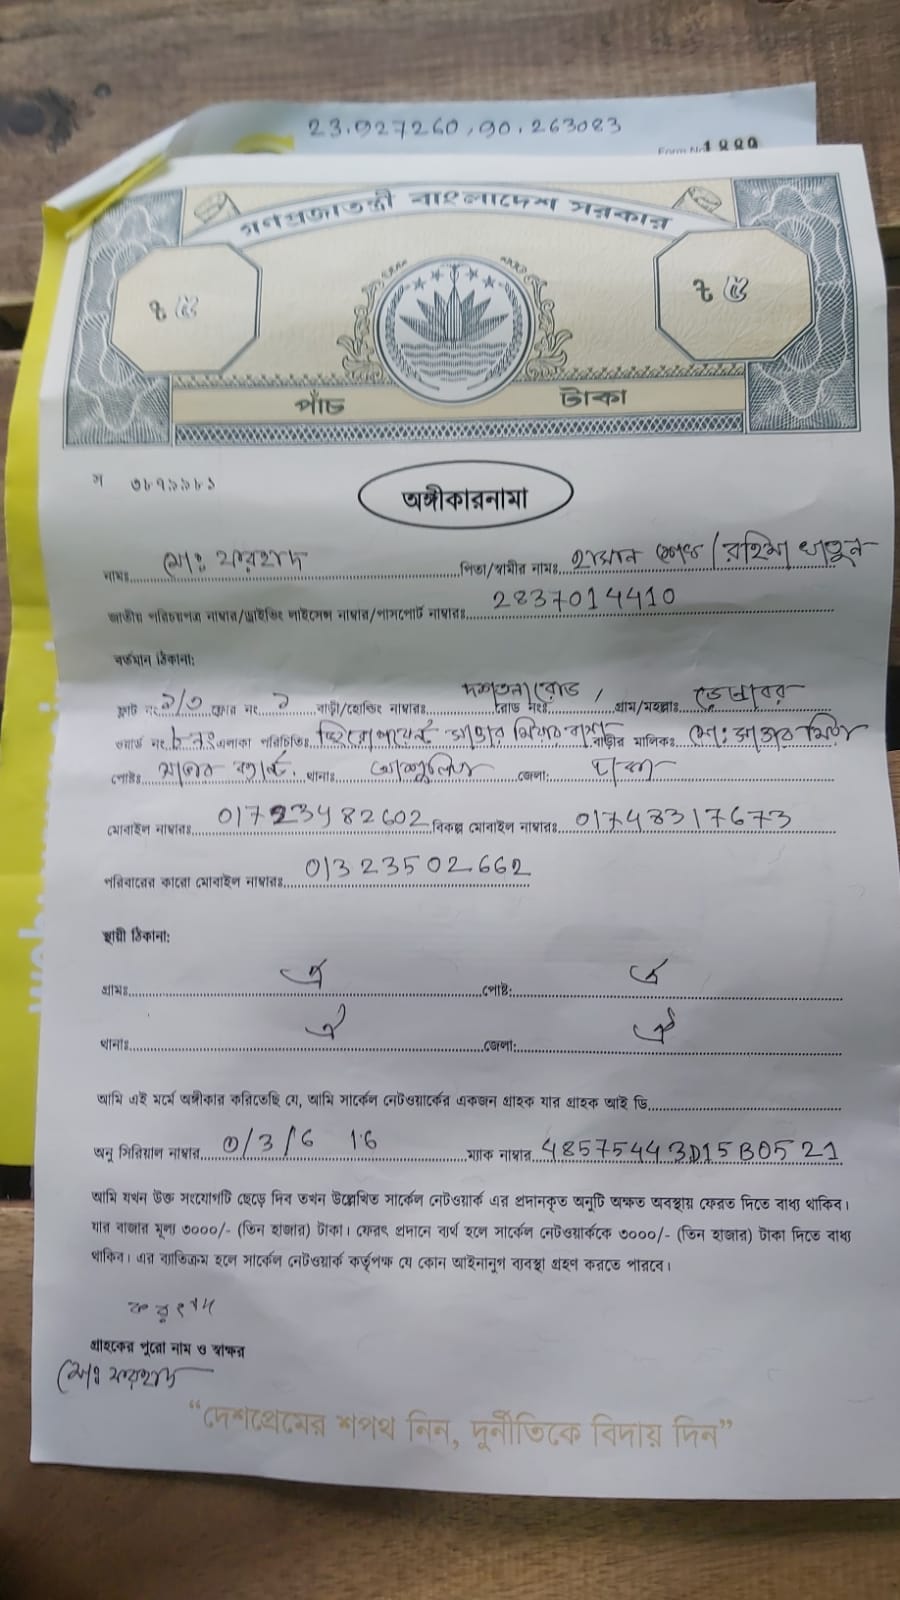 23.927260,90.263083
Form No 1889
গণপ্রজাতন্ত্রী বাংলাদেশ সরকার
৳ ৫ ৳ ৫
পাঁচ টাকা
গ ৩৮৭৯৯৮১
অঙ্গীকারনামা
নামঃ মোঃ ফরহাদ পিতা/স্বামীর নামঃ হাসান শেখ/রহিমা খাতুন
জাতীয় পরিচয়পত্র নাম্বার/ড্রাইভিং লাইসেন্স নাম্বার/পাসপোর্ট নাম্বারঃ 2837014410
বর্তমান ঠিকানা:
ফ্লাট নং ১/৩ ফ্লোর নং ১ বাড়ী/হোল্ডিং নাম্বারঃ রোড নংঃ গ্রাম/মহল্লাঃ
ওয়ার্ড নং এলাকা পরিচিতিঃ বাড়ীর মালিকঃ মোঃ
পোষ্টঃ থানাঃ আশুলিয়া জেলা: ঢাকা
মোবাইল নাম্বারঃ 01723482602 বিকল্প মোবাইল নাম্বারঃ 01748317673
পরিবারের কারো মোবাইল নাম্বারঃ 01323502662
স্থায়ী ঠিকানা:
গ্রামঃ ঐ পোষ্ট: ঐ
থানাঃ ঐ জেলা: ঐ
আমি এই মর্মে অঙ্গীকার করিতেছি যে, আমি সার্কেল নেটওয়ার্কের একজন গ্রাহক যার গ্রাহক আই ডি
অনু সিরিয়াল নাম্বার 0/3/6 16 ম্যাক নাম্বার 48575443D15B0521
আমি যখন উক্ত সংযোগটি ছেড়ে দিব তখন উল্লেখিত সার্কেল নেটওয়ার্ক এর প্রদানকৃত অনুটি অক্ষত অবস্থায় ফেরত দিতে বাধ্য থাকিব।
যার বাজার মূল্য ৩০০০/- (তিন হাজার) টাকা। ফেরৎ প্রদানে ব্যর্থ হলে সার্কেল নেটওয়ার্ককে ৩০০০/- (তিন হাজার) টাকা দিতে বাধ্য
থাকিব। এর ব্যতিক্রম হলে সার্কেল নেটওয়ার্ক কর্তৃপক্ষ যে কোন আইনানুগ ব্যবস্থা গ্রহণ করতে পারবে।
গ্রাহকের পুরো নাম ও স্বাক্ষর
মোঃ ফরহাদ
“দেশপ্রেমের শপথ নিন, দুর্নীতিকে বিদায় দিন”